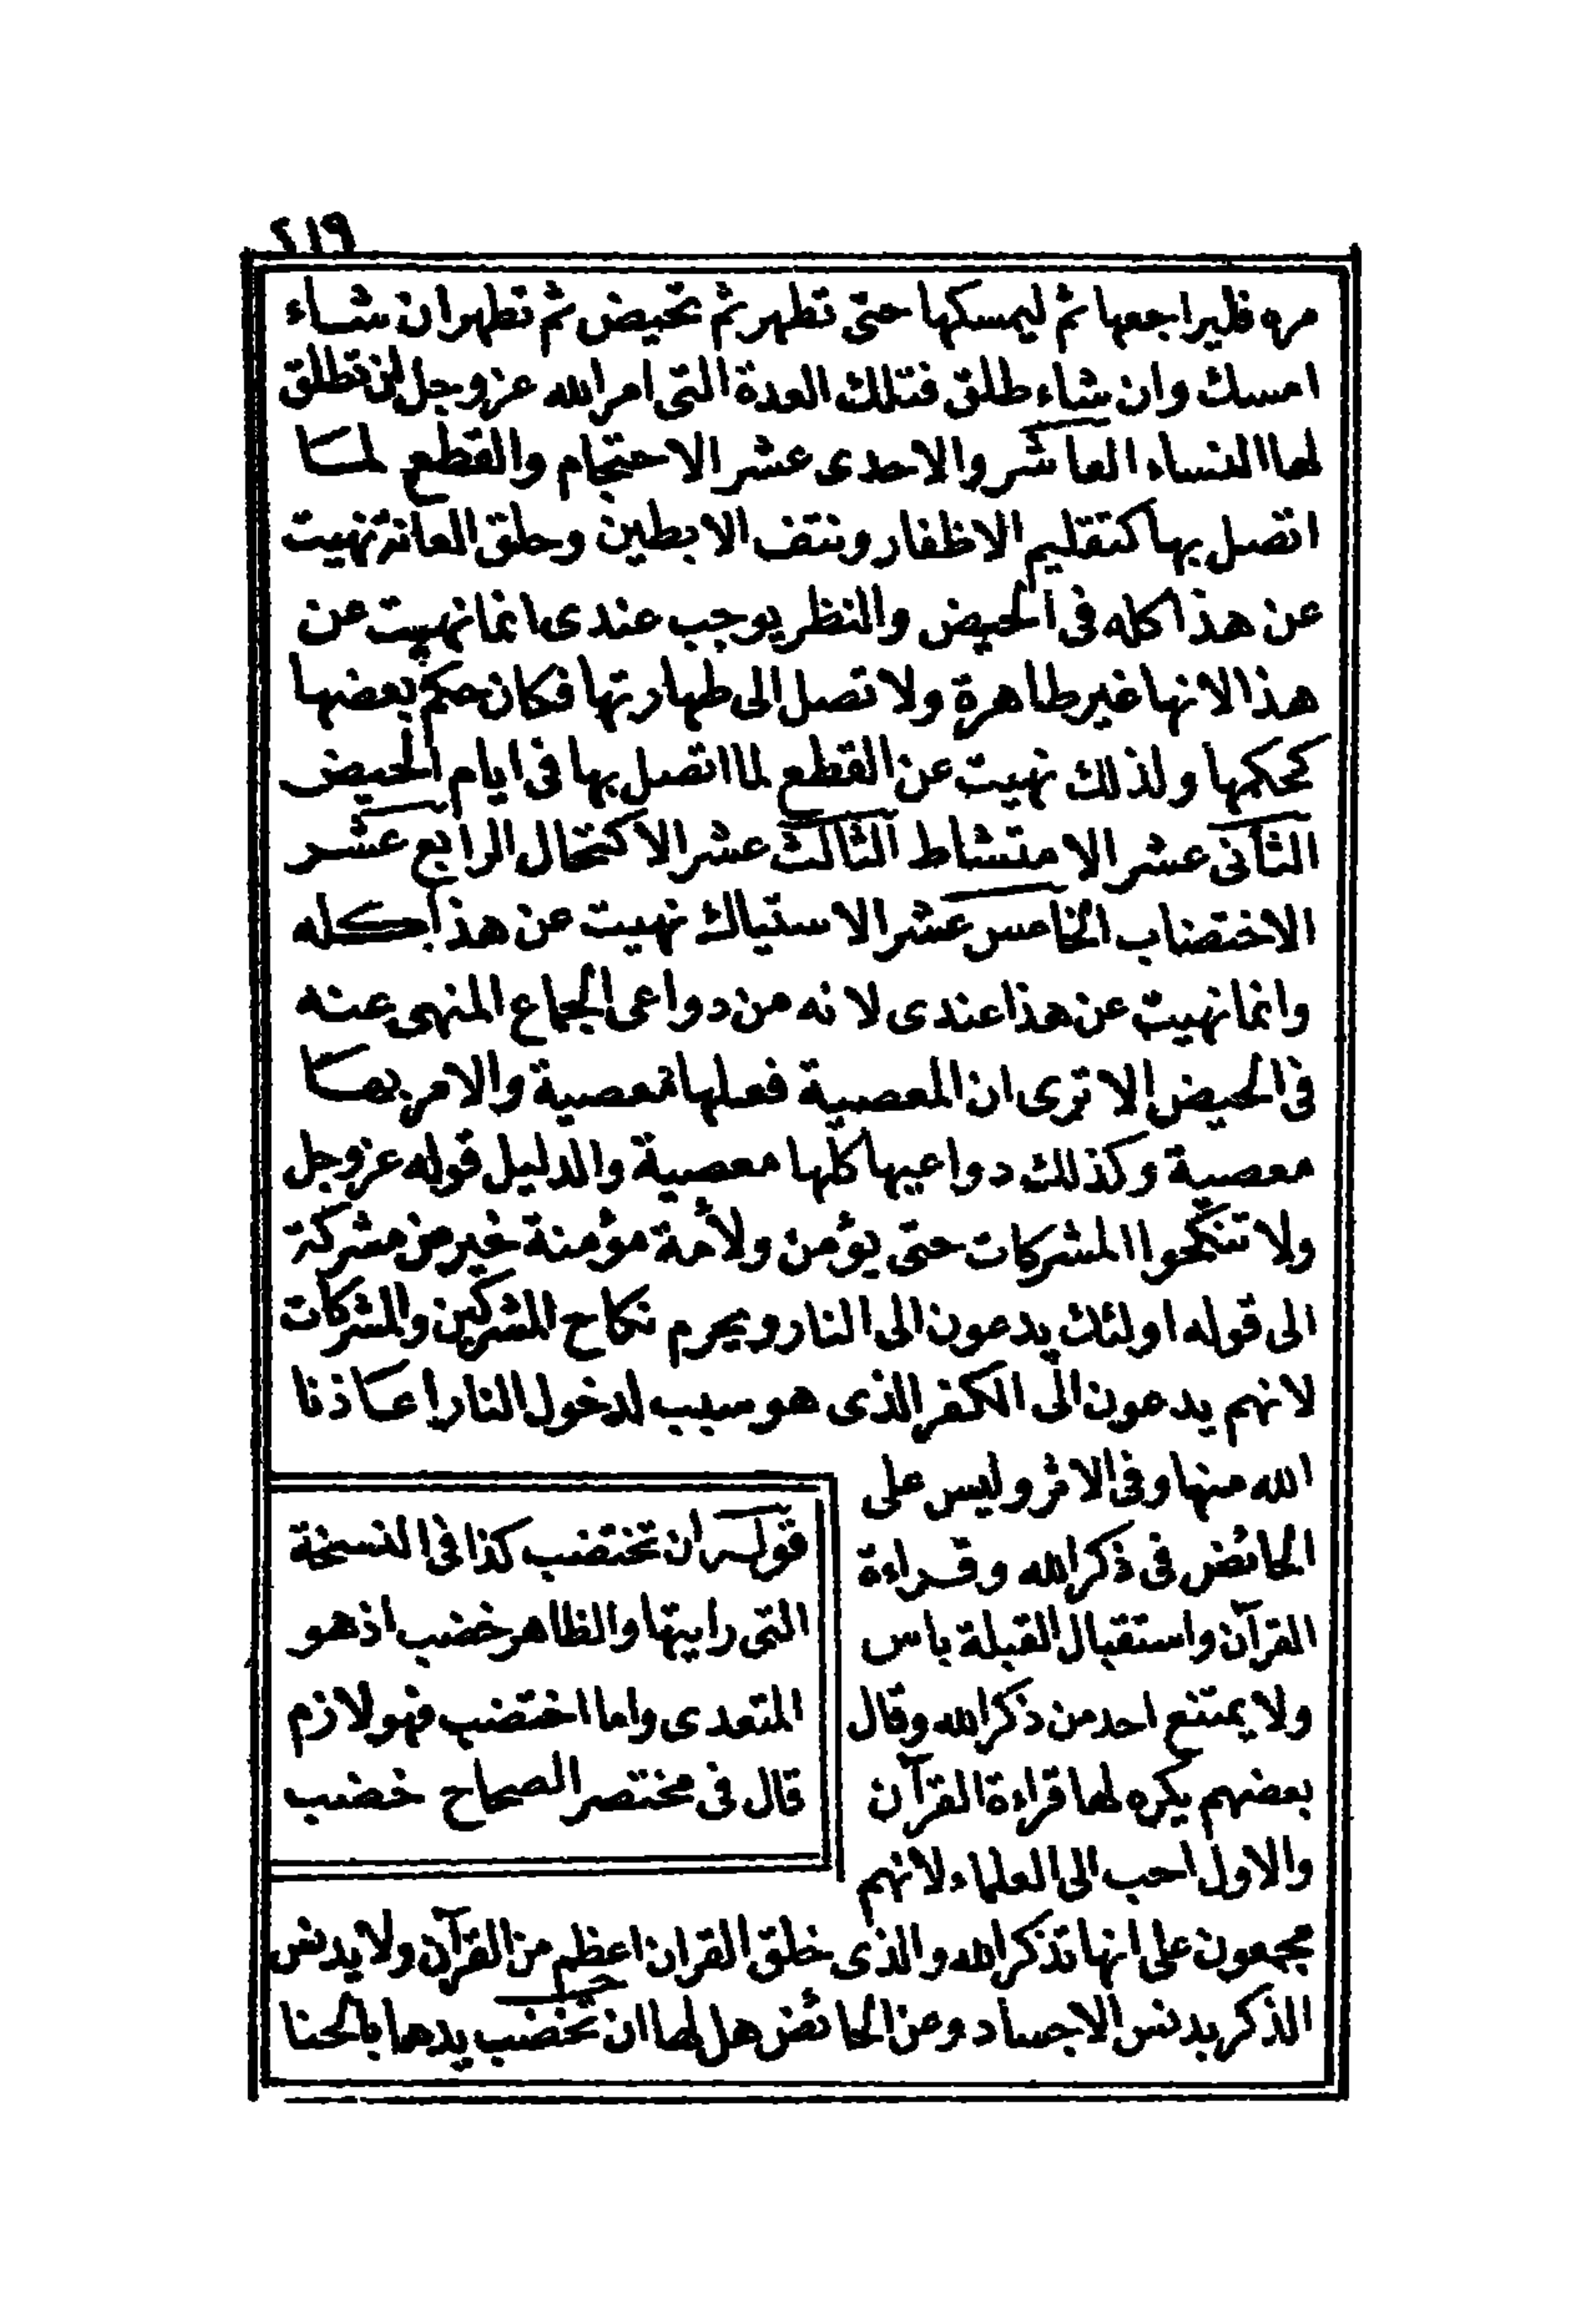 ٤١٩
مره فليراجعها ثم ليمسكها حتى تطهر ثم تحيض ثم تطهر ان شاء
امسك وان شاء طلق فتلك العدة التى امر الله عز وجل ان تطلق
لها النساء العاشر والاحدى عشر الاحتجام والقطع لما
اتصل بها كتقليم الاظفار ونتف الابطين وحلق العانة نهيت
عن هذا كله فى الحيض والنظر يوجب عندى انما نهيت عن
هذا لانها غير طاهرة ولا تصل الى طهارتها فكان حكم بعضها
كحكمها ولذلك نهيت عن القطع لما اتصل بها فى ايام الحيض
الثانى عشر الامتشاط الثالث عشر الاكتحال الرابع عشر
الاختضاب الخامس عشر الاستياك نهيت عن هذا كله
وانما نهيت عن هذا عندى لانه من دواعى الجماع المنهى عنه
فى الحيض الا ترى ان المعصية فعلها معصية والامر بها
معصية وكذلك دواعيها كلها معصية والدليل قوله عز وجل
ولا تنكحوا المشركات حتى يؤمن ولأمة مؤمنة خير من مشركة
الى قوله اولئك يدعون الى النار ويحرم نكاح المشركين والمشركات
لانهم يدعون الى الكفر الذى هو سبب لدخول النار اعاذنا
الله منها وفى الاثر وليس على
الحائض فى ذكر الله وقراءة
القرآن واستقبال القبلة باس
ولا يمتنع احد من ذكر الله وقال
بعضهم يكره لها قراءة القرآن
والاول احب الى العلماء لانهم
مجمعون على انها تذكر الله والذى خلق القران اعظم من القرآن ولا يدنس
الذكر بدنس الاجساد وعن الحائض هل لها ان تخضب يدها بالحنا
قوله ان تختضب كذا فى النسخة
التى رايتها والظاهر خضب اذ هو
المتعدى واما اختضب فهو لازم
قال فى مختصر الصحاح خضب